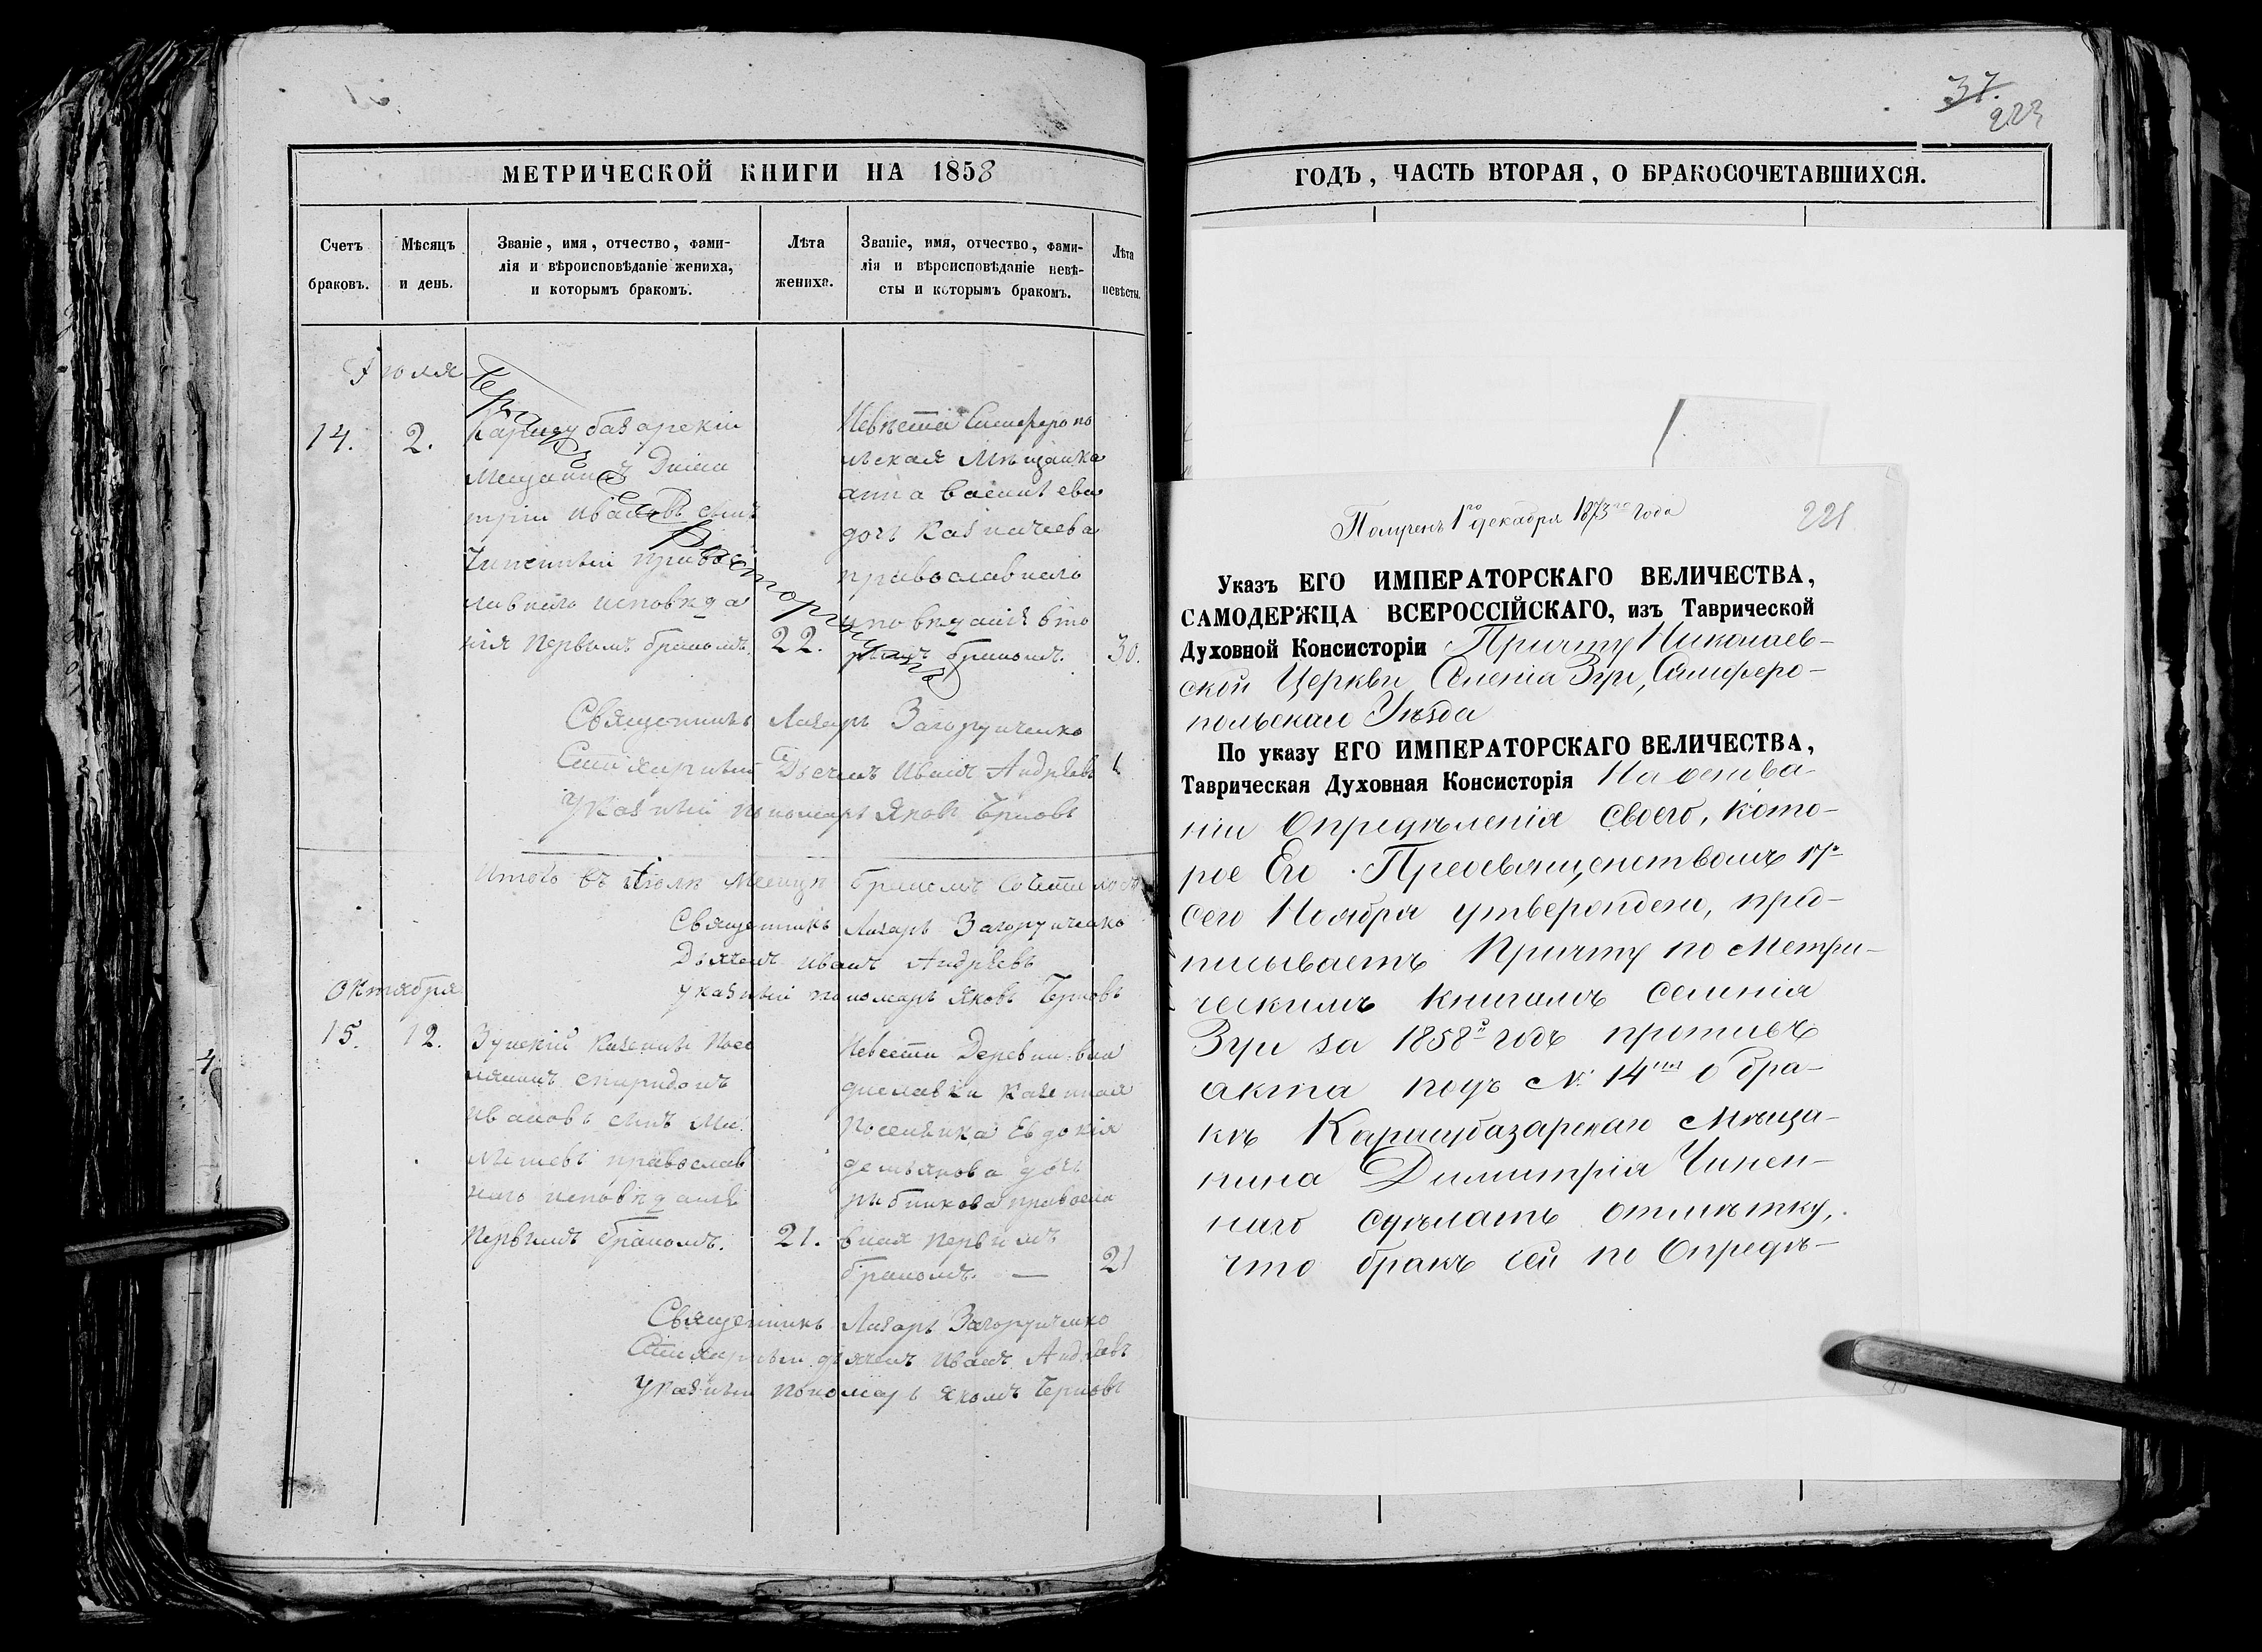 МЕТРИЧЕСКОЙ КНИГИ НА 1858
Счетъ браковъ.
Мѣсяцъ и день.
Званіе, имя, отчество, фами-
лія и вѣроисповѣданіе жениха,
и которымъ бракомъ.
Лѣта жениха.
Званіе, имя, отчество, фами-
лія и вѣроисповѣданіе невѣ-
сты и которымъ бракомъ.
Лѣта невѣсты.
Іюля
14. 2.
Карасубазарскій
Мещанинъ Дими
трій Ивановъ сынъ
Чипенный правос
лавнаго исповѣда
нія первымъ бракомъ. 22.
Невѣста Симферопо
льская Мѣщанка
Анна Василіева
дочь Казначеева
православнаго
исповѣданія вто
рымъ бракомъ. 30.
Бракъ сей расторгнутъ
Священникъ Лазарь Загоруйченко
Стихарный Дьячекъ Иванъ Андрѣевъ
Указный пономарь Яковъ Черновъ
Итого въ Іюлѣ месяцѣ бракомъ сочетилось
Священникъ Лазарь Загоруйченко
Дьячекъ Иванъ Андрѣевъ
Указный пономарь Яковъ Черновъ
Октября
15. 12.
Зуйскій казенный Посе
лянинъ Спиридонъ
Ивановъ сынъ
православ
наго исповѣданія
первымъ бракомъ. 21.
Невеста Деревни Вла
диславки казенная
Поселянка Евдокія
Демьянова дочь
Рыбникова правосла
вная первымъ
бракомъ. — 21
Священникъ Лазарь Загоруйченко
Стихарный дьячекъ Иванъ Андрѣевъ
Указный пономарь Яковъ Черновъ
37.
223
ГОДЪ, ЧАСТЬ ВТОРАЯ, О БРАКОСОЧЕТАВШИХСЯ.
Полученъ 1го декабря 1873го года
221
Указъ ЕГО ИМПЕРАТОРСКАГО ВЕЛИЧЕСТВА,
САМОДЕРЖЦА ВСЕРОССІЙСКАГО, изъ Таврической
Духовной Консисторіи Причту Николаев-
ской Церкви Селенія Зуи, Симферо-
польскаго Уѣзда
По указу ЕГО ИМПЕРАТОРСКАГО ВЕЛИЧЕСТВА,
Таврическая Духовная Консисторія На основа-
ніи Опредѣленія своего, кото-
рое Его Преосвященствомъ 17го
сего Ноября утверждено, пред-
писываетъ Причту по Метри-
ческимъ книгамъ селенія
Зуи за 1858й годъ противъ
акта подъ №. 14мъ о бра-
кѣ Карасубазарскаго Мѣща-
нина Димитрія Чипен-
наго сдѣлать отмѣтку,
что бракъ сей по Опредѣ-